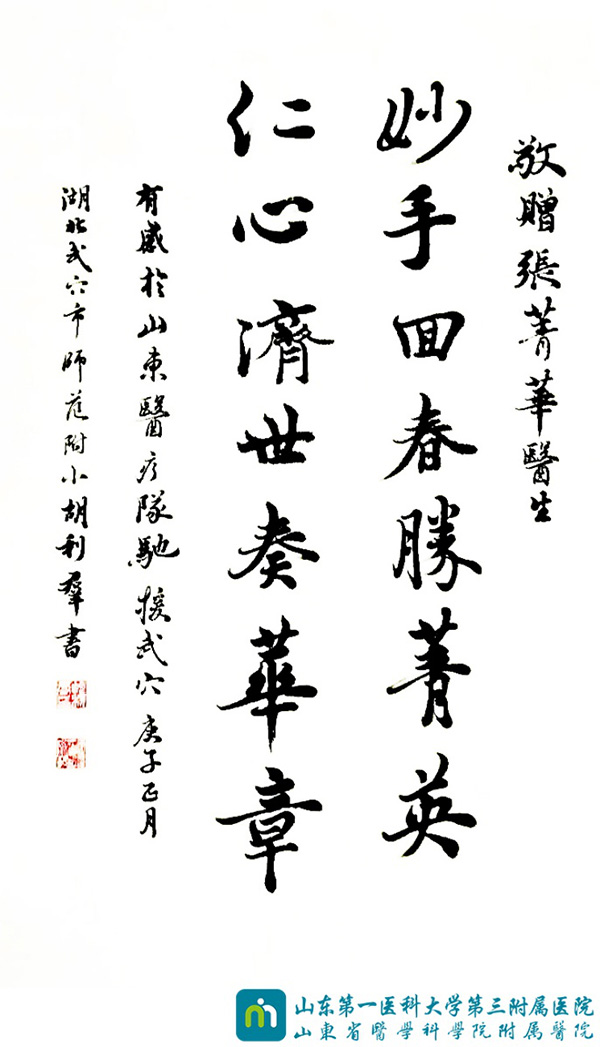 敬贈張菁華醫生
妙手回春勝菁英
仁心濟世奏華章
有感於山東醫疗隊馳援武穴 庚子正月
湖北武穴市師范附小胡利羣書
山东第一医科大学第三附属医院
山東省醫學科學院附属醫院